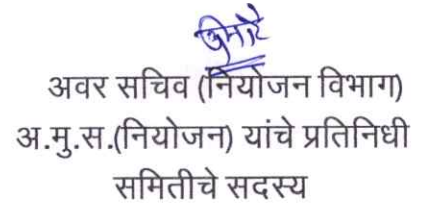 अवर सचिव (नियोजन विभाग)
अ.मु.स.(नियोजन) यांचे प्रतिनिधी
समितीचे सदस्य